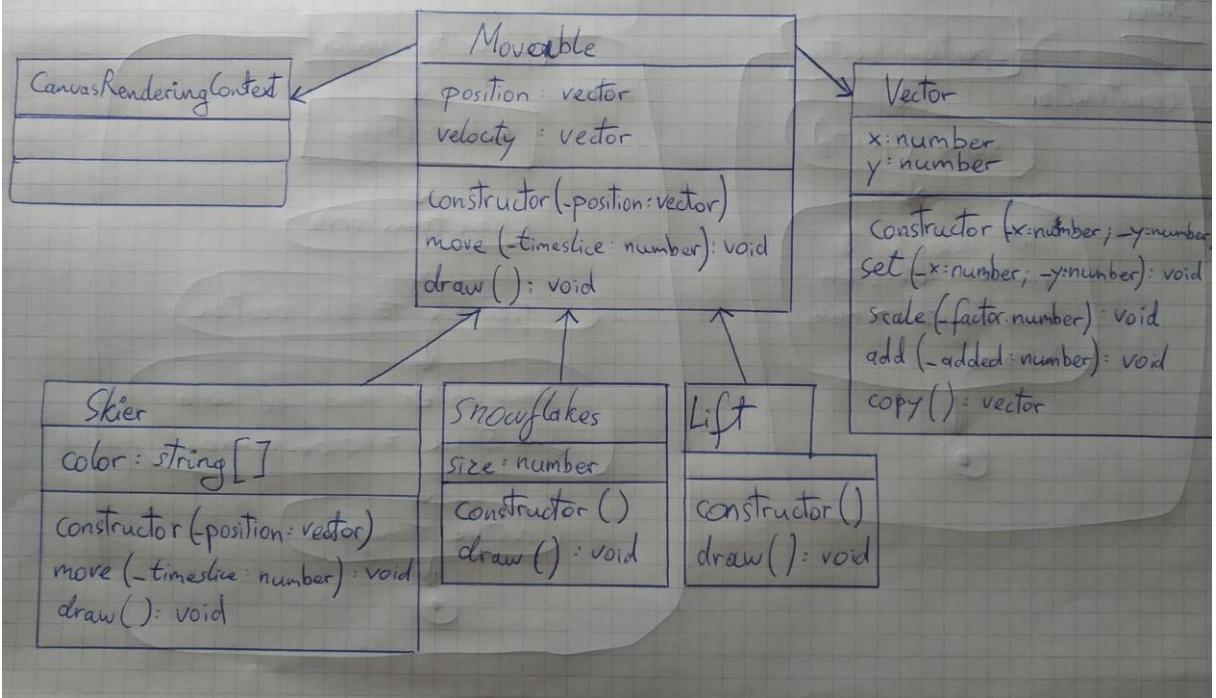 Moveable
position : vector
velocity : vector
constructor(_position: vector)
move (_timeslice: number): void
draw(): void
CanvasRenderingContext
Vector
x: number
y: number
constructor (_x: number; _y: number
set (_x: number; _y: number): void
scale (_factor: number): void
add (_added: number): void
copy(): vector
Skier
color: string[]
constructor(_position: vector)
move (_timeslice: number): void
draw(): void
Snowflakes
size: number
constructor()
draw(): void
Lift
constructor()
draw(): void